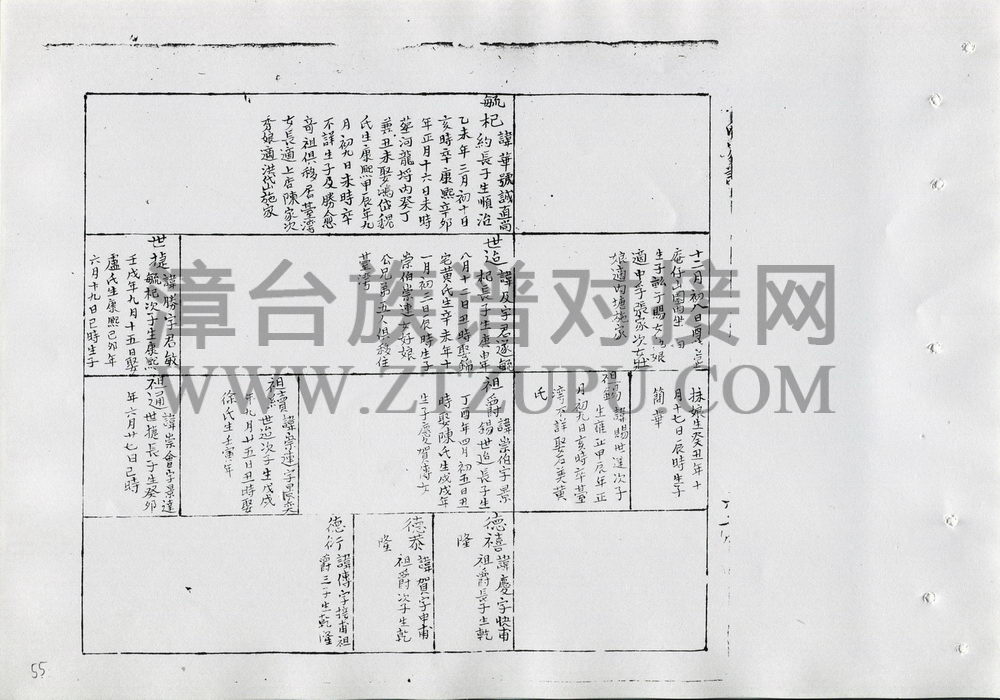 毓杞
諱華號誠直尚
約長子生順治
乙未年三月初十日
亥時卒康熙辛卯
年正月十六日未時
葬河龍埓内癸丁
兼丑未娶鴻岱魏
氏生康熙甲辰年九
月初九日未時卒
不詳生子及勝愈
奇祖俱移居臺灣
女長適上店陳家次
秀娘適洪岱施家
十二月初八日酉
生子
適中亭張家次女
娘適内塘施家
世迨
諱及字君逐毓
杞長子生庚申年
八月十二日丑時娶錦
宅黄氏生辛未年十
一月初二日辰時生子
崇伯崇蓮女好娘
公兄弟五人俱移住
臺灣
世捷
諱勝字君敏
毓杞次子生康熙
壬戌年九月十五日娶
盧氏生康熙己卯年
六月十九日己時生子
抹娘生癸丑年十
月十七日辰時生子
簡華
祖錫
諱賜世進次子
生雍正甲辰年正
月初九日亥時卒臺
灣不詳娶后美黄
氏
祖爵
諱崇伯字景
錫世迨長子生
丁酉年四月初五日丑
時娶陳氏生戊戌年
生子慶賀傳女
祖續
諱崇蓮字景奕
世迨次子生戊戌
年九月廿五日丑時娶
徐氏生壬寅年
祖通
諱崇會字景達
世捷長子生癸卯
年六月廿七日己時
德禧
諱慶字快甫
祖爵長子生乾
隆
德恭
諱賀字申甫
祖爵次子生乾
隆
德行
諱傳字接甫祖
爵三子生乾隆
漳台族谱对接网
WWW.ZTZUPU.COM
55